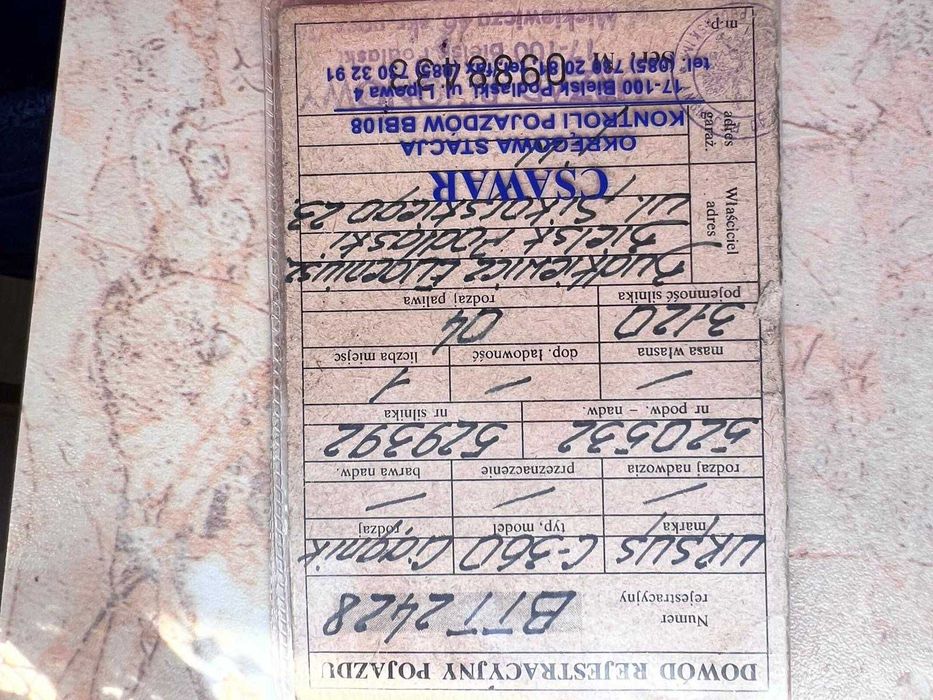 DOWÓD REJESTRACYJNY POJAZDU
Numer rejestracyjny BTT 2428
URSUS C-360 Ciągnik
marka typ, model rodzaj
/ / /
rodzaj nadwozia przeznaczenie barwa nadw.
520532 529392
nr podw. – nadw. nr silnika
/ / 1
masa własna dop. ładowność liczba miejsc
3120 04
pojemność silnika rodzaj paliwa
Właściciel
adres
Eugeniusz
Bielsk Podlaski
ul. Sikorskiego 23
CSAWAR
OKRĘGOWA STACJA
KONTROLI POJAZDÓW BB108
17-100 Bielsk Podlaski, ul. Lipowa 4
tel. (085) 730 20 81, tel/fax (085) 730 32 91
adres
garaż.
Ser. Nr 0988433
17-100 Bielsk Podlaski
m.p.